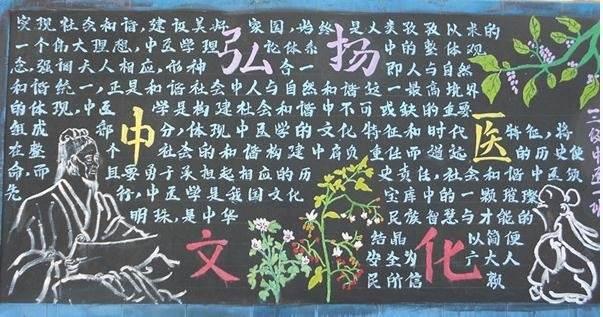 实现社会和谐,建设美好 家园,始终是人类孜孜以求的
一个伟大理想,中医学理 论体系 中的整体观
念,强调天人相应,形神 合一 即人与自然
和谐统一,正是和谐社会中人与自然和谐这一最高境界
的体现,中医 学是构建社会和谐中不可或缺的重要
组成 部 分,体现中医学的文化特征和时代 特征,将
在整 个 社会的和谐构建中肩负重任而道远 的历史使
命,而 且要勇于承担起相应的历 史责任,社会和谐中医做
先 行,中医学是我国文化 宝库中的一颗璀璨
明珠,是中华 民族智慧与才能的
结晶 以简便
安全为 广大人
民所信
弘扬
中医
文化